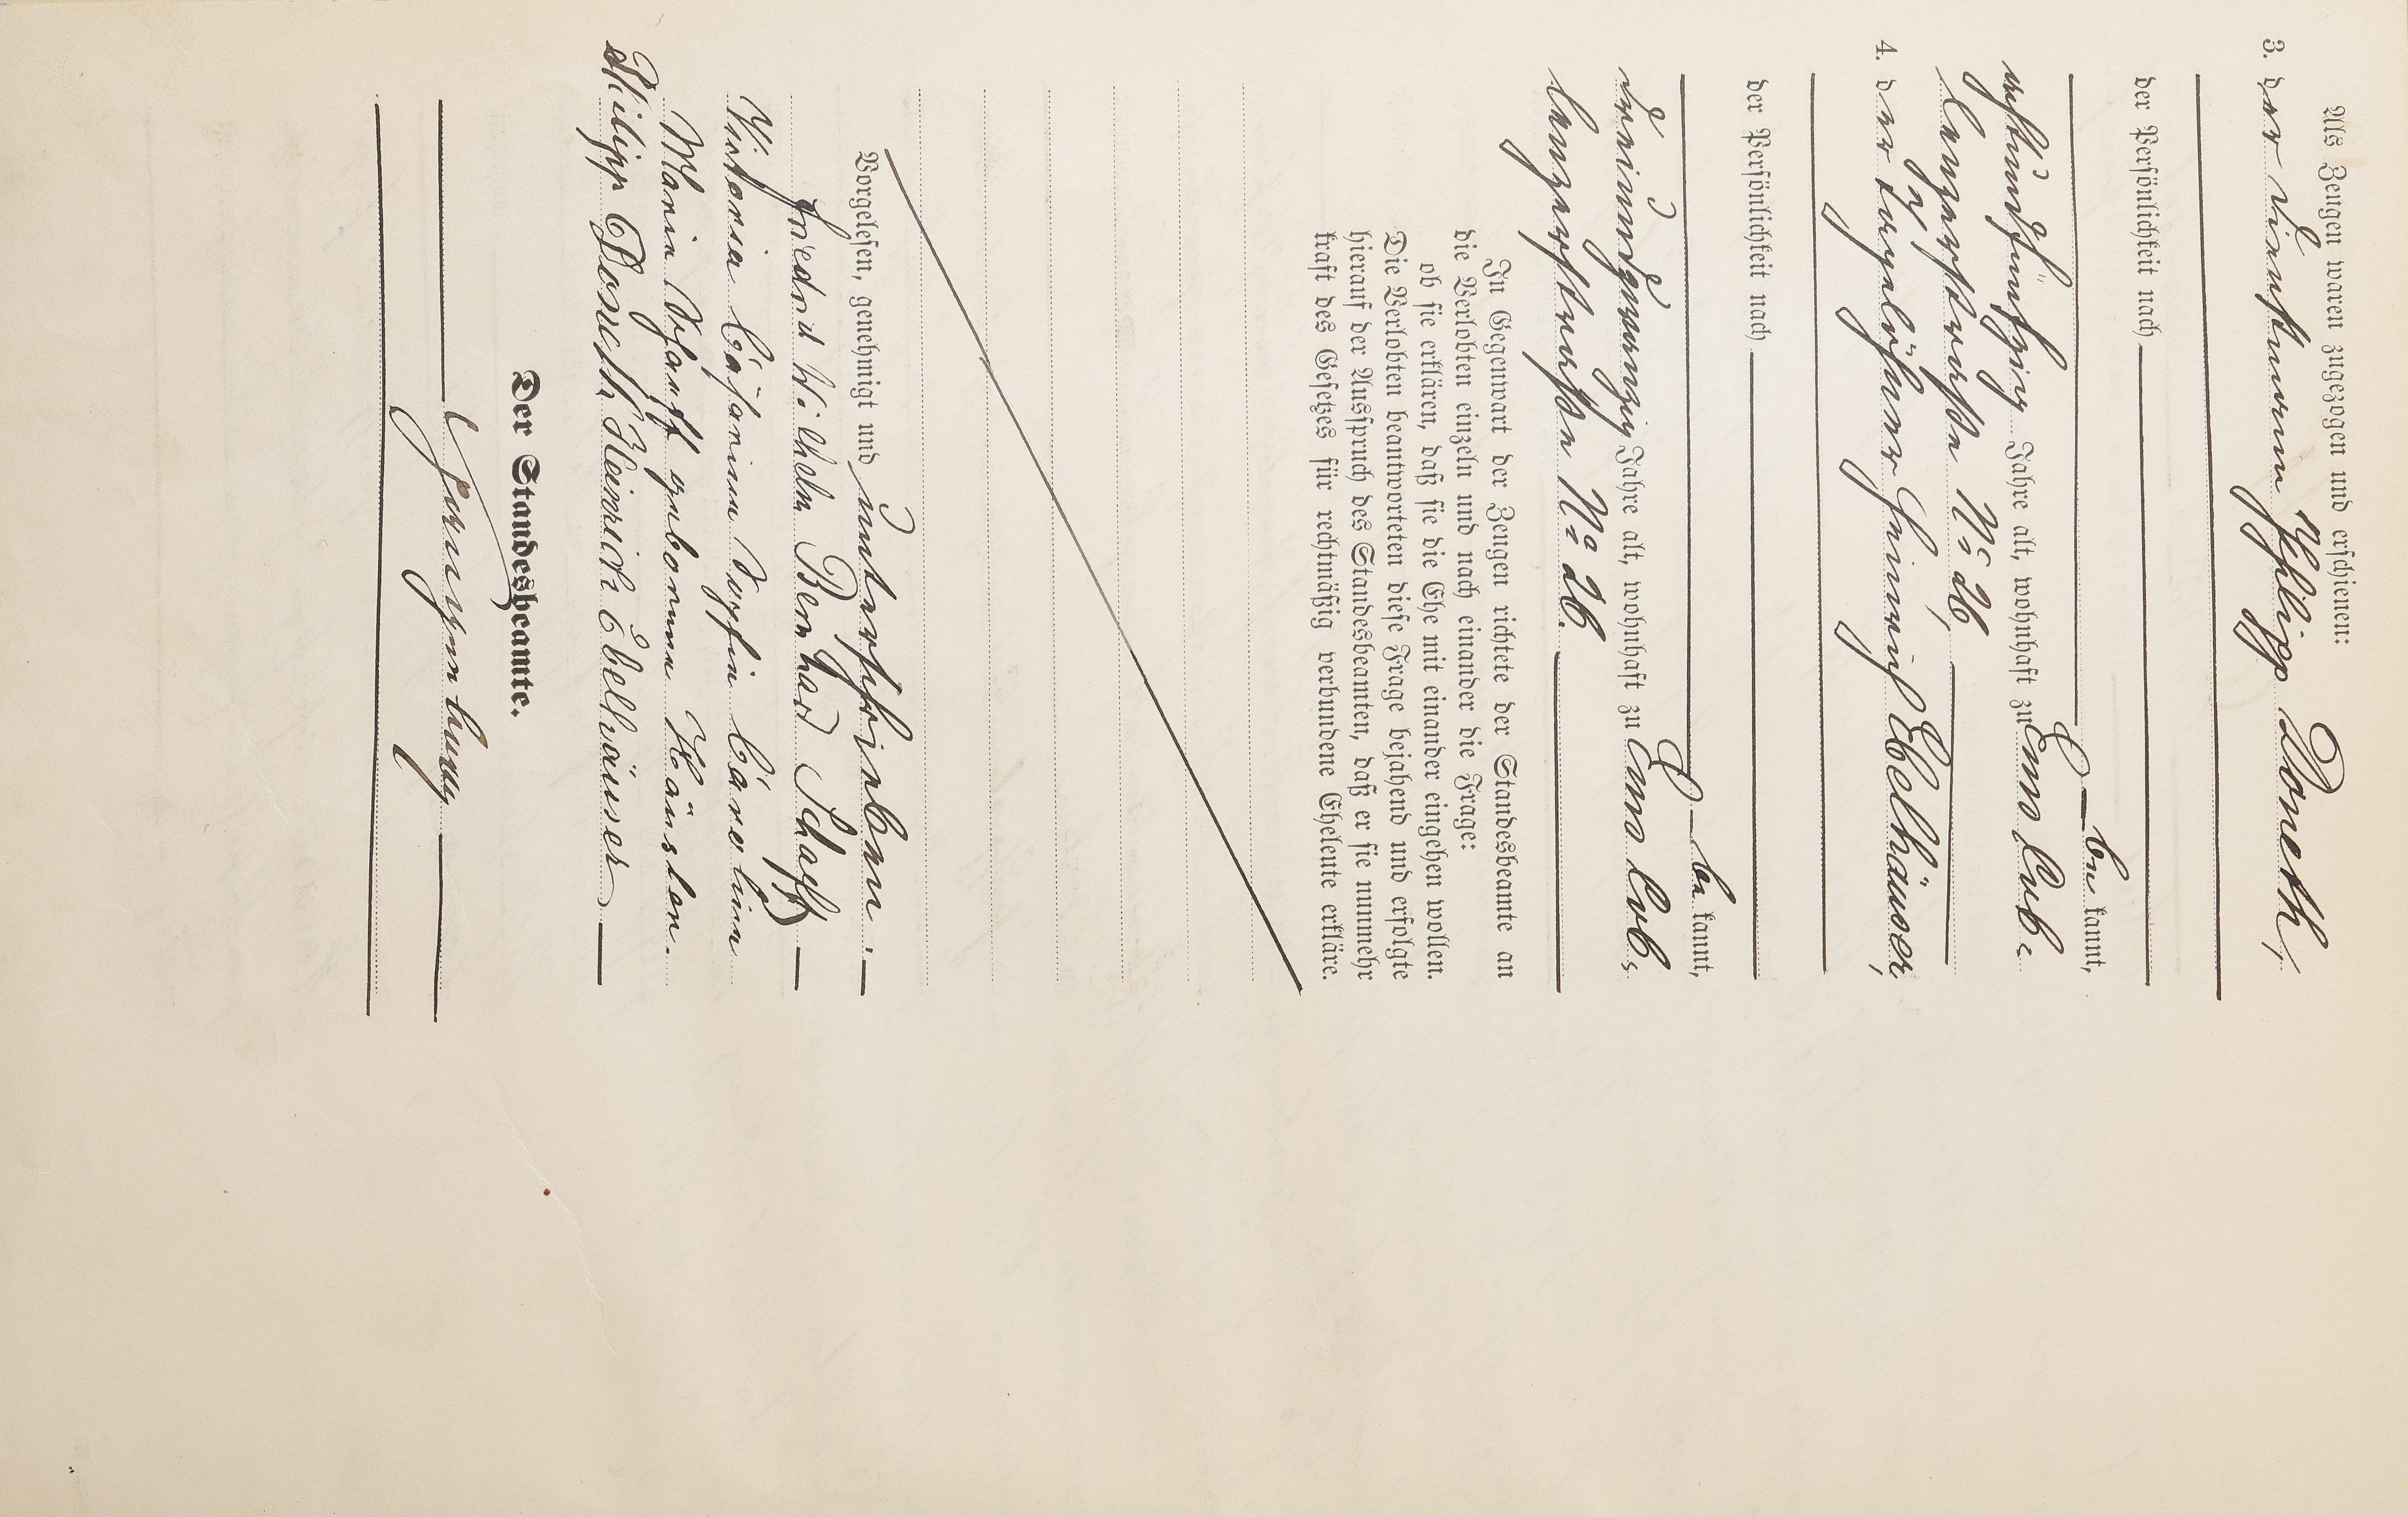 Als Zeugen waren zugezogen und erschienen:
3. der Dienstmann Philipp Doneth,
der Persönlichkeit nach
be kannt,
achtundfünfzig Jahre alt, wohnhaft zu Ems Lub=
Lenzerstraße No 26,
4. der Tagelöhner Heinrich Ebelhäuser,
der Persönlichkeit nach
be kannt,
dreiundzwanzig Jahre alt, wohnhaft zu Ems Cob=
lenzerstraße No 26.
In Gegenwart der Zeugen richtete der Standesbeamte an
die Verlobten einzeln und nach einander die Frage:
ob sie erklären, daß sie die Ehe mit einander eingehen wollen.
Die Verlobten beantworteten diese Frage bejahend und erfolgte
hierauf der Ausspruch des Standesbeamten, daß er sie nunmehr
kraft des Gesetzes für rechtmäßig verbundene Eheleute erkläre.
Vorgelesen, genehmigt und unterschrieben.
Friedrich Wilhelm Bernhard Schaff
Victoria Catharina Sophia Carolina
Maria Schauff geborene Häuslen.
Philipp Doneth Heinrich Ebelhäuser
Der Standesbeamte.